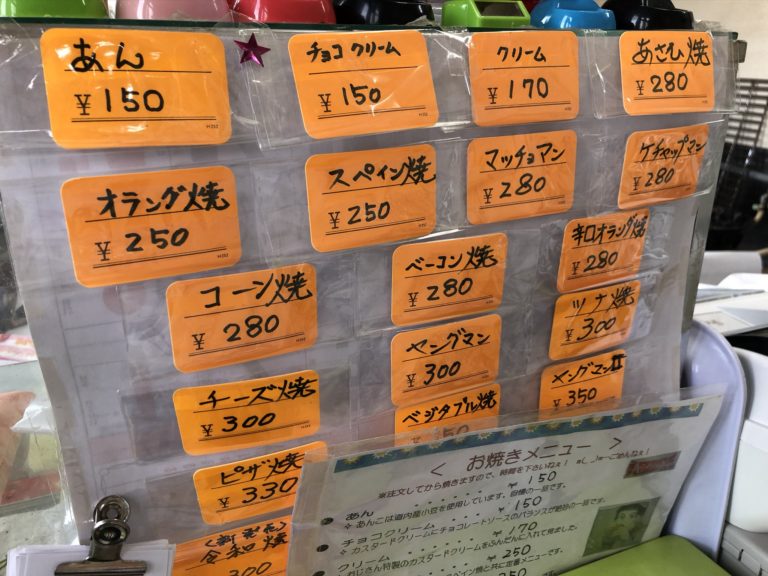 あん
¥150
チョコクリーム
¥150
クリーム
¥170
あさひ焼
¥280
オランダ焼
¥250
スペイン焼
¥250
マッチョマン
¥280
ケチャップマン
¥280
コーン焼
¥280
ベーコン焼
¥280
辛口オランダ焼
¥280
チーズ焼
¥300
ヤングマン
¥300
ツナ焼
¥300
ピザ焼
¥330
ベジタブル焼
ヤングマンII
¥350
<新発売>
令和焼
300
< お焼きメニュー >
※注文してから焼きますので、時間を下さいねぇ!
あん ・・・・・・・ ¥150
※ あんこは道内産小豆を使用しています。自慢の一品です。
チョコクリーム ・・・・・ ¥150
※ カスタードクリームとチョコレートソースのバランスが絶妙の一品です。
クリーム ・・・・・・ ¥170
おじさん特製のカスタードクリームをふんだんに入れて見ました。
¥250
スペイン焼と共に定番メニューです。